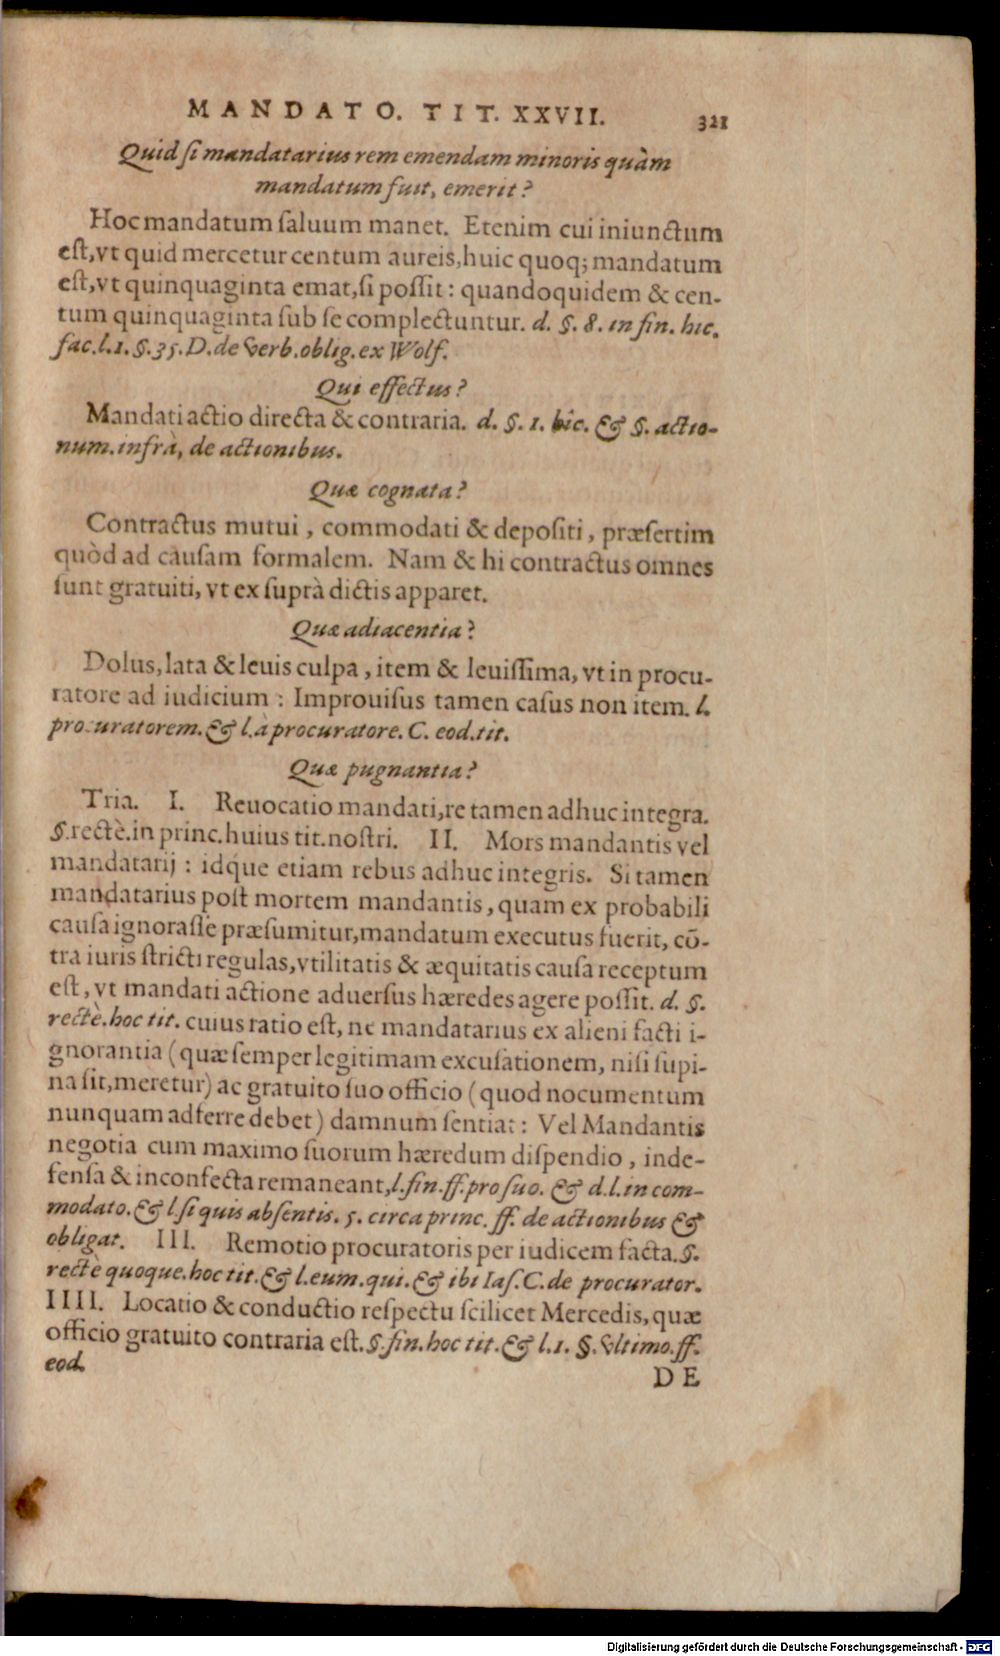 MANDATO. TIT. XXVII. 321
Quid ſi mandatarius rem emendam minoris quàm
mandatum fuit, emerit?
Hoc mandatum ſaluum manet. Etenim cui iniunctum
eſt, vt quid mercetur centum aureis, huic quoq; mandatum
eſt, vt quinquaginta emat, ſi poſſit: quandoquidem & cen-
tum quinquaginta ſub ſe complectuntur. d. §. 8. in fin. hic.
fac. l. 1. §. 35. D. de verb. oblig. ex Wolf.
Qui effectus?
Mandati actio directa & contraria. d. §. 1. hîc. & §. actio-
num. infrà, de actionibus.
Quæ cognata?
Contractus mutui, commodati & depoſiti, præſertim
quòd ad cauſam formalem. Nam & hi contractus omnes
ſunt gratuiti, vt ex ſuprà dictis apparet.
Quæ adiacentia?
Dolus, lata & leuis culpa, item & leuiſſima, vt in procu-
ratore ad iudicium: Improuiſus tamen caſus non item. l.
procuratorem. & l. à procuratore. C. eod. tit.
Quæ pugnantia?
Tria. I. Reuocatio mandati, re tamen adhuc integra.
§. rectè. in princ. huius tit. noſtri. II. Mors mandantis vel
mandatarij: idque etiam rebus adhuc integris. Si tamen
mandatarius poſt mortem mandantis, quam ex probabili
cauſa ignoraſſe præſumitur, mandatum executus fuerit, cō-
tra iuris ſtricti regulas, vtilitatis & æquitatis cauſa receptum
eſt, vt mandati actione aduerſus hæredes agere poſſit. d. §.
rectè. hoc tit. cuius ratio eſt, ne mandatarius ex alieni facti i-
gnorantia (quæ ſemper legitimam excuſationem, niſi ſupi-
na ſit, meretur) ac gratuito ſuo officio (quod nocumentum
nunquam adferre debet) damnum ſentiat: Vel Mandantis
negotia cum maximo ſuorum hæredum diſpendio, inde-
fenſa & inconfecta remaneant, l. fin. ff. pro ſuo. & d. l. in com-
modato. & l. ſi quis abſentis. 5. circa princ. ff. de actionibus &
obligat. III. Remotio procuratoris per iudicem facta. §.
rectè quoque. hoc tit. & l. eum. qui. & ibi Iaſ. C. de procurator.
IIII. Locatio & conductio reſpectu ſcilicet Mercedis, quæ
officio gratuito contraria eſt. §. fin. hoc tit. & l. 1. §. vltimo. ff.
eod.
DE
Digitalisierung gefördert durch die Deutsche Forschungsgemeinschaft - DFG